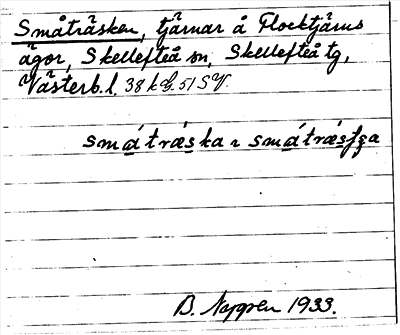 Småträsken, tjärnar å Flocktjärns
ägor, Skellefteå sn, Skellefteå tg,
Västerb. l. 38 k G. 51 SV.
smátrǽska ~ smátrǽsʃʒa
B. Nygren 1933.